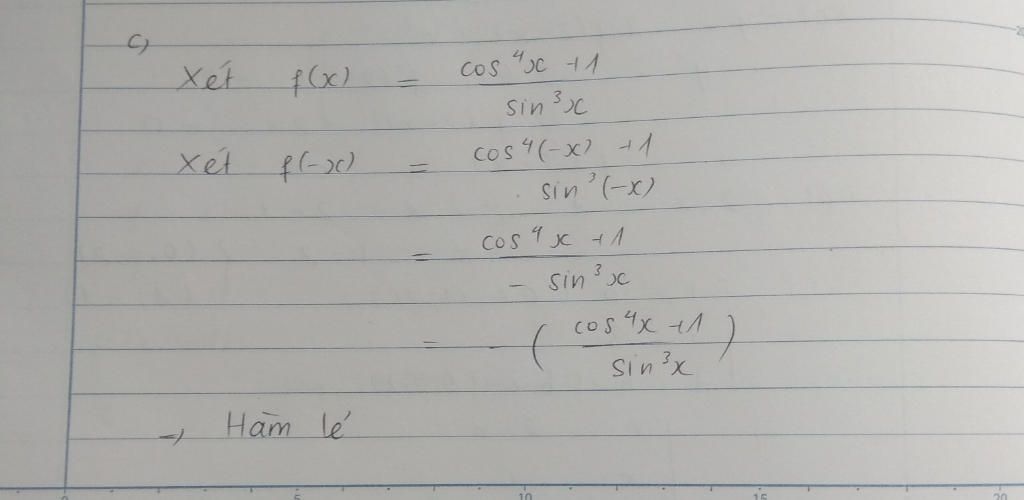 c)
Xét f(x) = cos⁴x + 1 / sin³x
Xét f(-x) = cos⁴(-x) + 1 / sin³(-x)
= cos⁴x + 1 / - sin³x
= - ( cos⁴x + 1 / sin³x )
→ Hàm lẻ
0 5 10 15 20